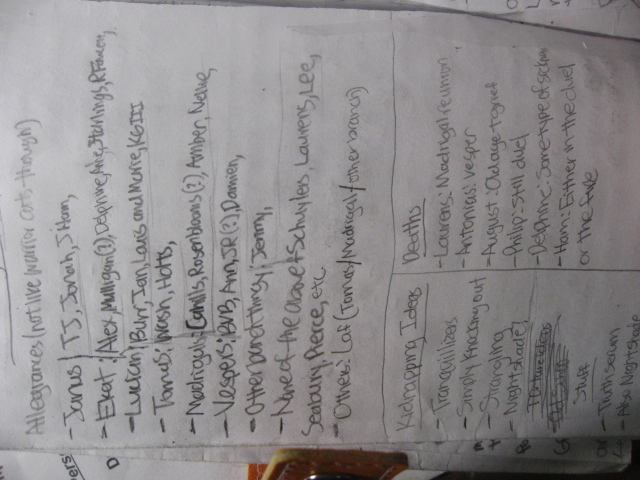 Allegiances (not like warrior cats though)
- Janus / TJ, Jonah, J Ham,
- Ekat: / Alex, Mulligan(?), Delphine, Alie, Hastings, R
- Lucian; / Burr, Ian, Louis and Marie, KG III
- Tomas: Wash, Holts,
- Madrigals: Cahills, Rosenblooms (?), Amber, Nellie,
- Vespers; BVB, Ann, JR(?), Damien,
- Other punothingy; Jenny,
- None of the above + Schuylers, Laurens, Lee,
Seabury, Pierce, etc
- Others: Laf (Tomas/Madrigal/other branch)
Kidnapping Ideas
- Tranquilizers
- Simply Knocking out
- Strangling
- Nightshade?
Stuff
- Truth serum
- Also Nightshade
Deaths
- Laurens: Madrigal reunion
- Antonias: Vesper
- August: Old age + grief
- Philip: Still duel
- Delphine: Some type of sickness
- Ham: Either in the duel
or the fire